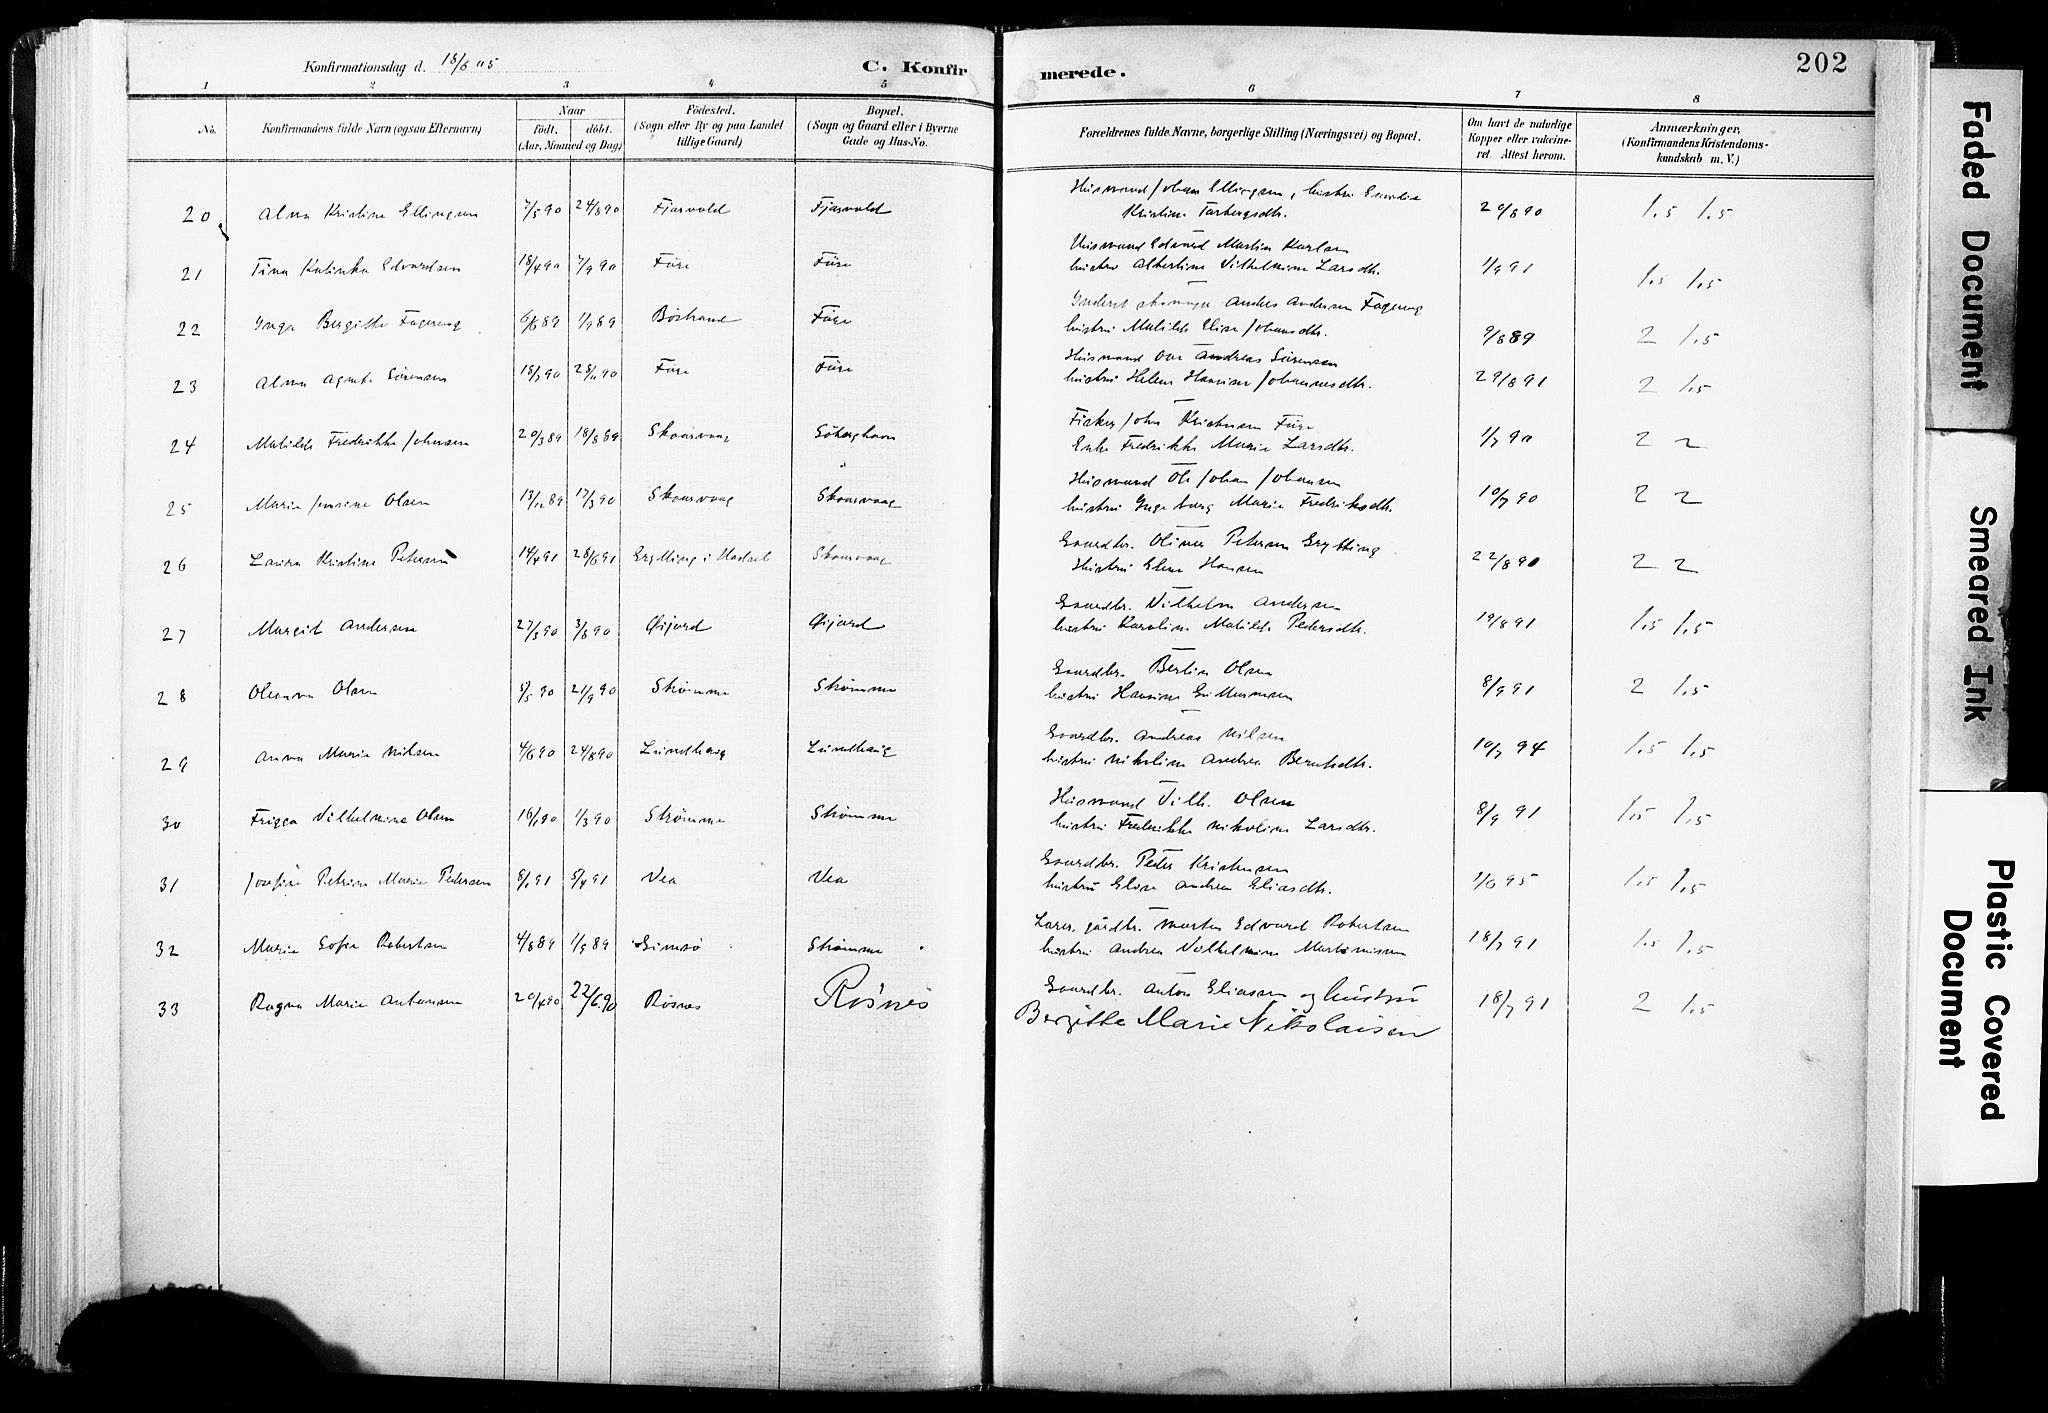 Konfirmationsdag d. 18/6 05
C. Konfirmerede.
202
1 2 3 4 5 6 7 8
No.
Konfirmandens fulde Navn (ogsaa Efternavn)
Naar
födt. döbt.
(Aar, Maaned og Dag)
Födested.
(Sogn eller By og paa Landet
tillige Gaard)
Bopæl.
(Sogn og Gaard eller i Byerne
Gade og Hus-No.
Forældrenes fulde Navne, borgerlige Stilling (Næringsvei) og Bopæl.
Om havt de naturlige
Kopper eller vakcine-
ret. Attest herom.
Anmærkninger.
(Konfirmandens Kristendoms-
kundskab m. V.)
20 Alma Kristine Ellingsen 7/5 90 24/8 90 Fjærvold Fjærvold Husmand Johan Ellingsen, hustru
Kristine Torbergsdtr. 20/8 90 1,5 1,5
21 Tina Katinka Edvardsen 18/4 90 7/9 90 Füre Füre Husmand Edvard Martin Karlsen
hustru Albertine Vilhelmine Larsdtr. 1/9 91 1,5 1,5
22 Inga Bergitte Fagereng 6/6 89 1/9 89 Böstrand Füre Inderst Anders Andersen Fagereng
hustru Matilde Elise Johansdtr. 9/8 89 2 1,5
23 Alma Agnete Sörensen 18/7 90 28/11 90 Füre Füre Husmand Ove Andreas Sörensen
hustru Helene Hansine Johannesdtr. 29/8 91 2 1,5
24 Matilde Fredrikke Johnsen 20/3 89 18/8 89 Skaarvaag Fisker John Kristensen Füre
Enke Fredrikke Marie Larsdtr. 1/7 90 2 2
25 Marie Jensine Olsen 13/12 89 17/3 90 Skaarvaag Skaarvaag Husmand Ole Johan Johansen
hustru Ingeborg Marie Fredriksdtr. 10/7 90 2 2
26 Laura Kristine Petersen 14/4 91 28/6 91 Grytting i Hadsel Skaarvaag Gaardbr. Oliver Petersen Grytting
Hustru Elene Hansen 22/8 90 2 2
27 Margit Andersen 27/3 90 3/8 90 Øijord Øijord Gaardbr. Vilhelm Andersen
hustru Karoline Matilde Pedersdtr. 19/8 91 1,5 1,5
28 Oleanna Olsen 5/5 90 21/9 90 Strømme Strømme Gaardbr. Bertin Olsen
hustru Hansine 8/9 91 2 1,5
29 Anna Marie Nilsen 4/6 90 24/8 90 Lundhaug Lundhaug Gaardbr. Andreas Nilsen
hustru Nikoline Andrea Berntsdtr. 10/7 94 1,5 1,5
30 Frigga Vilhelmine Olsen 16/1 90 1/3 90 Strømme Strømme Husmand Vilh. Olsen
hustru Fredrikke Nikoline Larsdtr. 8/9 91 1,5 1,5
31 Josefine Petrine Marie Pedersen 8/1 91 5/4 91 Vea Vea Gaardbr. Peder Kristensen
hustru Elise Andrea Eliasdtr. 1/6 95 1,5 1,5
32 Marie Sofie Robertsen 4/8 89 1/9 89 Gimsö Strømme Morten Edvard Robertsen
hustru Andrea Vilhelmine Martinussen 18/7 91 1,5 1,5
33 Ragna Marie Antonsen 20/4 90 22/6 90 Rösnes Rösnes Gaardbr. Anton Eliassen og hustru
Bergitte Marie Nikolaisen 18/7 91 2 1,5
Faded Document
Smeared Ink
Plastic Covered
Document